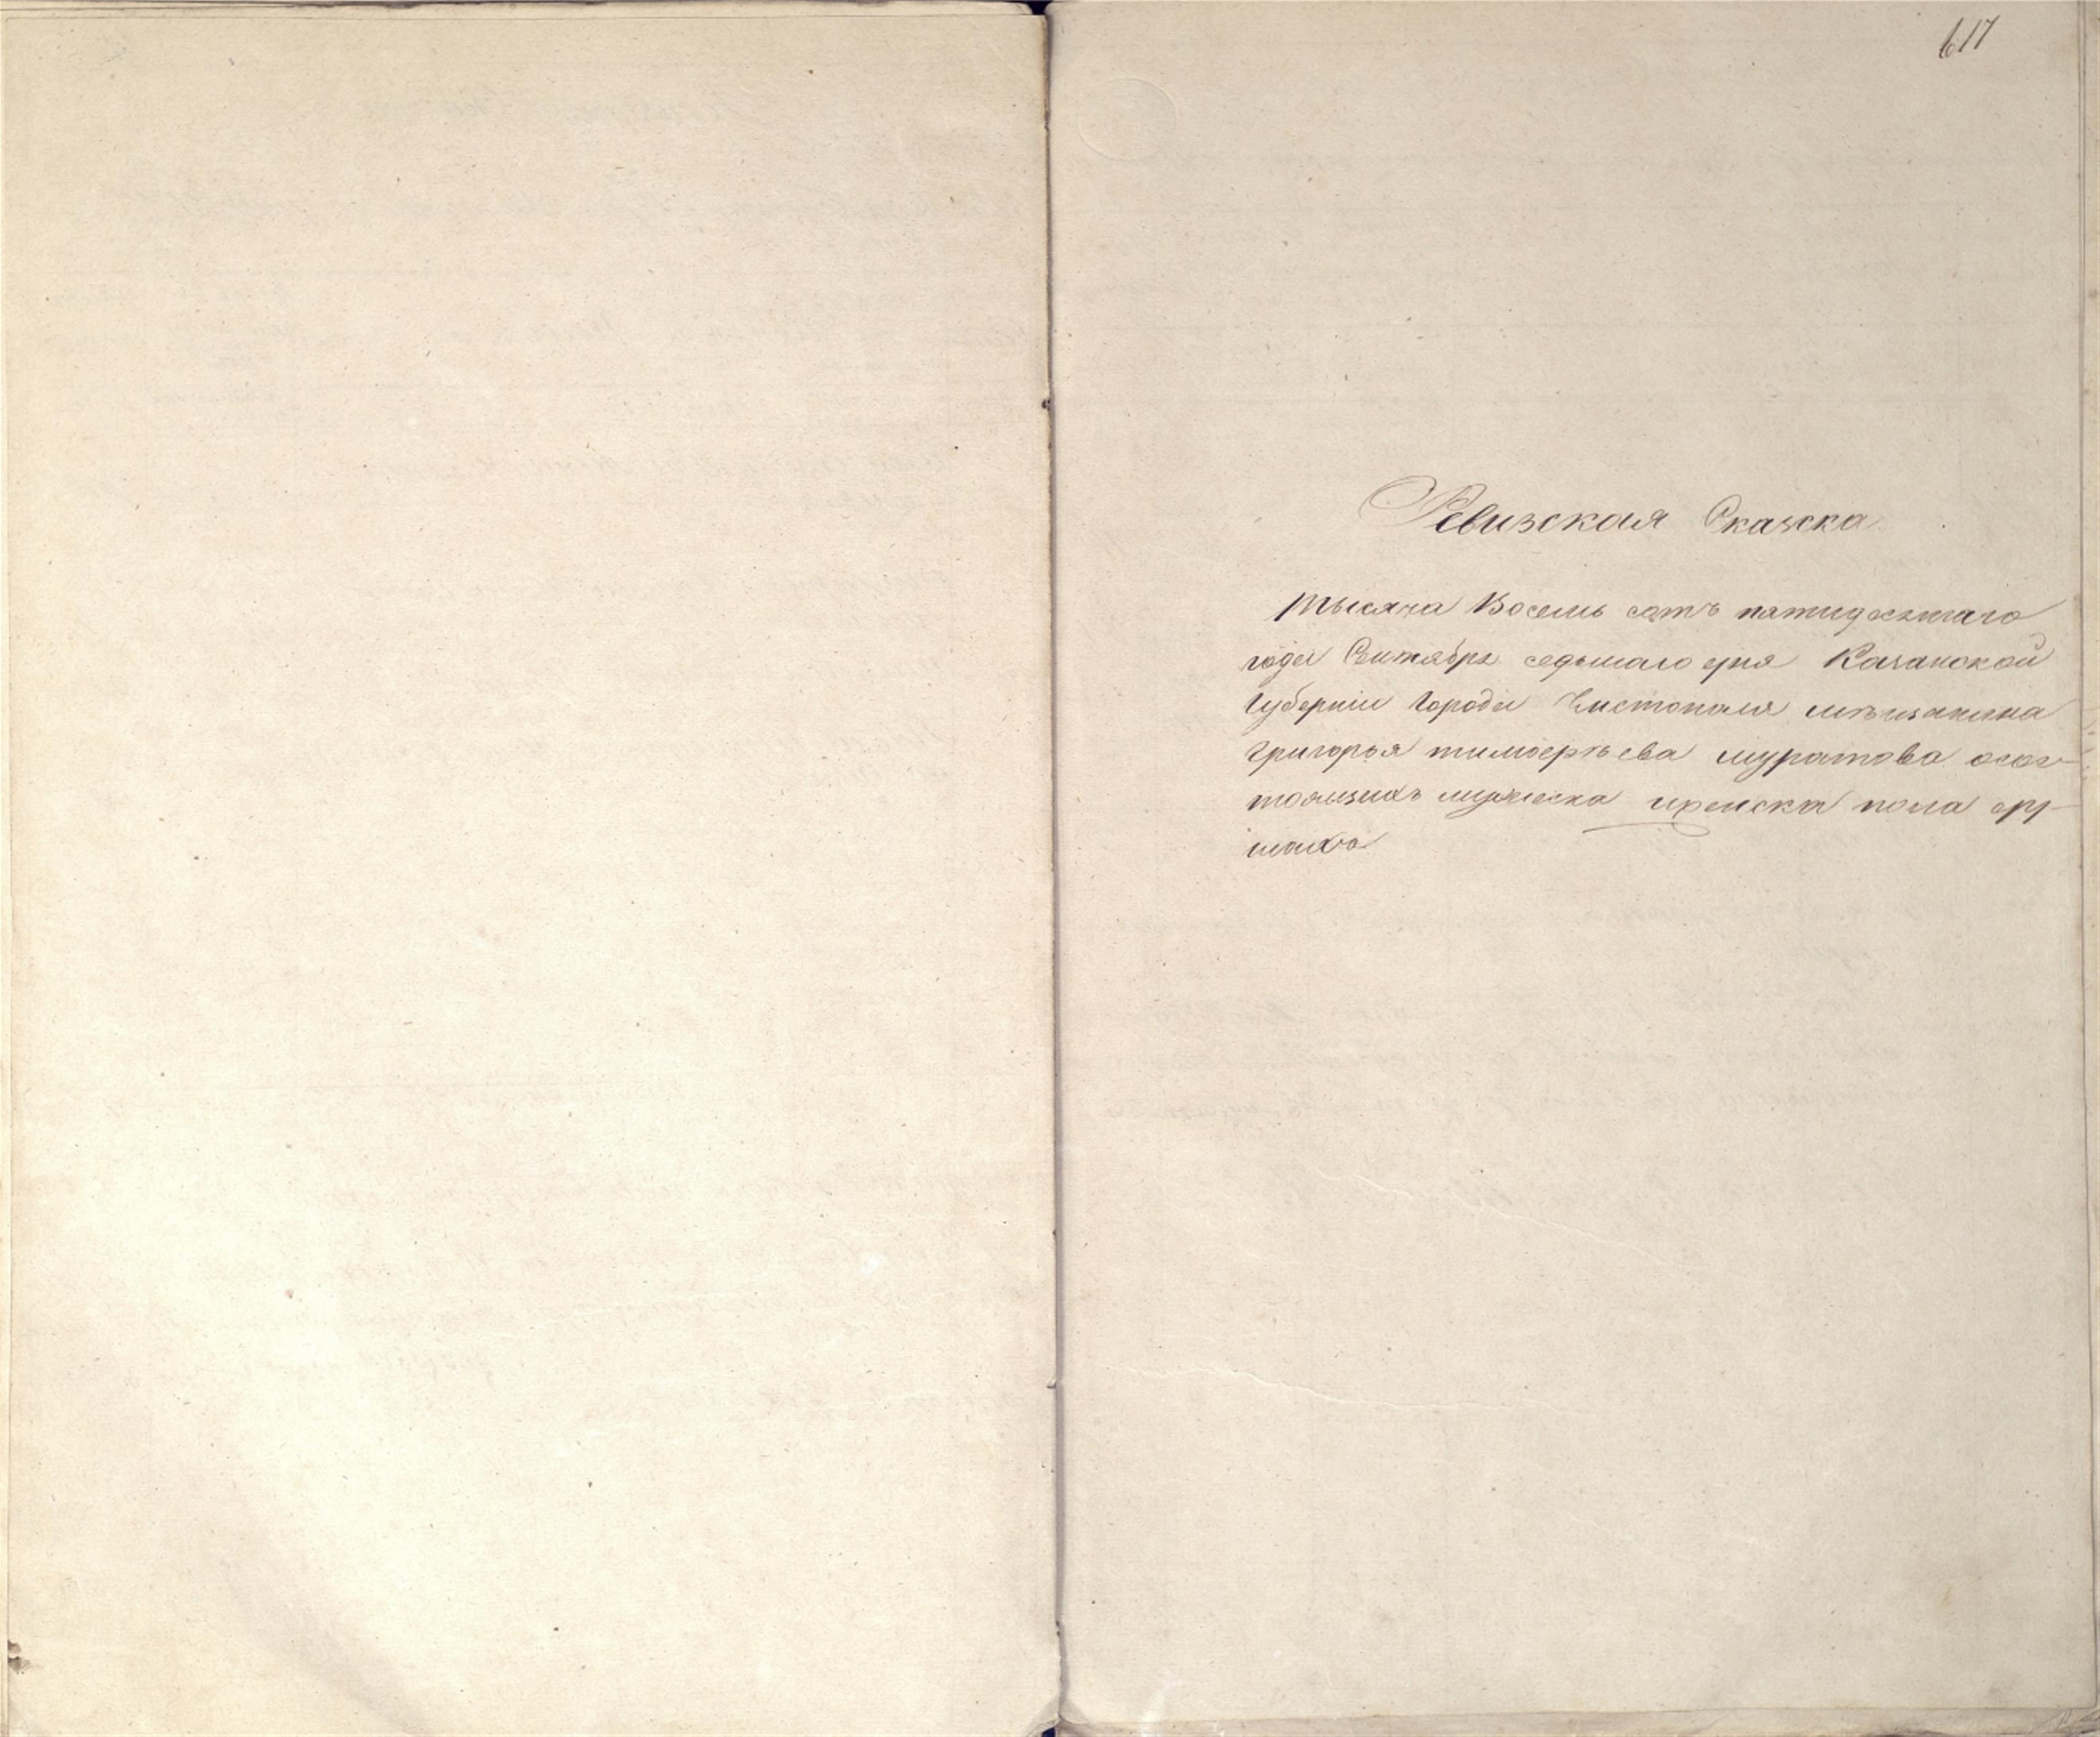 617
Ревизская Сказска
тысяча Восемь сотъ пятидесятаго
года Сентября седьмаго дня Казанской
Губернии города Чистополя мѣщанина
Григорья тимоѳеева муратова осос-
тоящихъ мужеска иженска пола ду-
шахъ